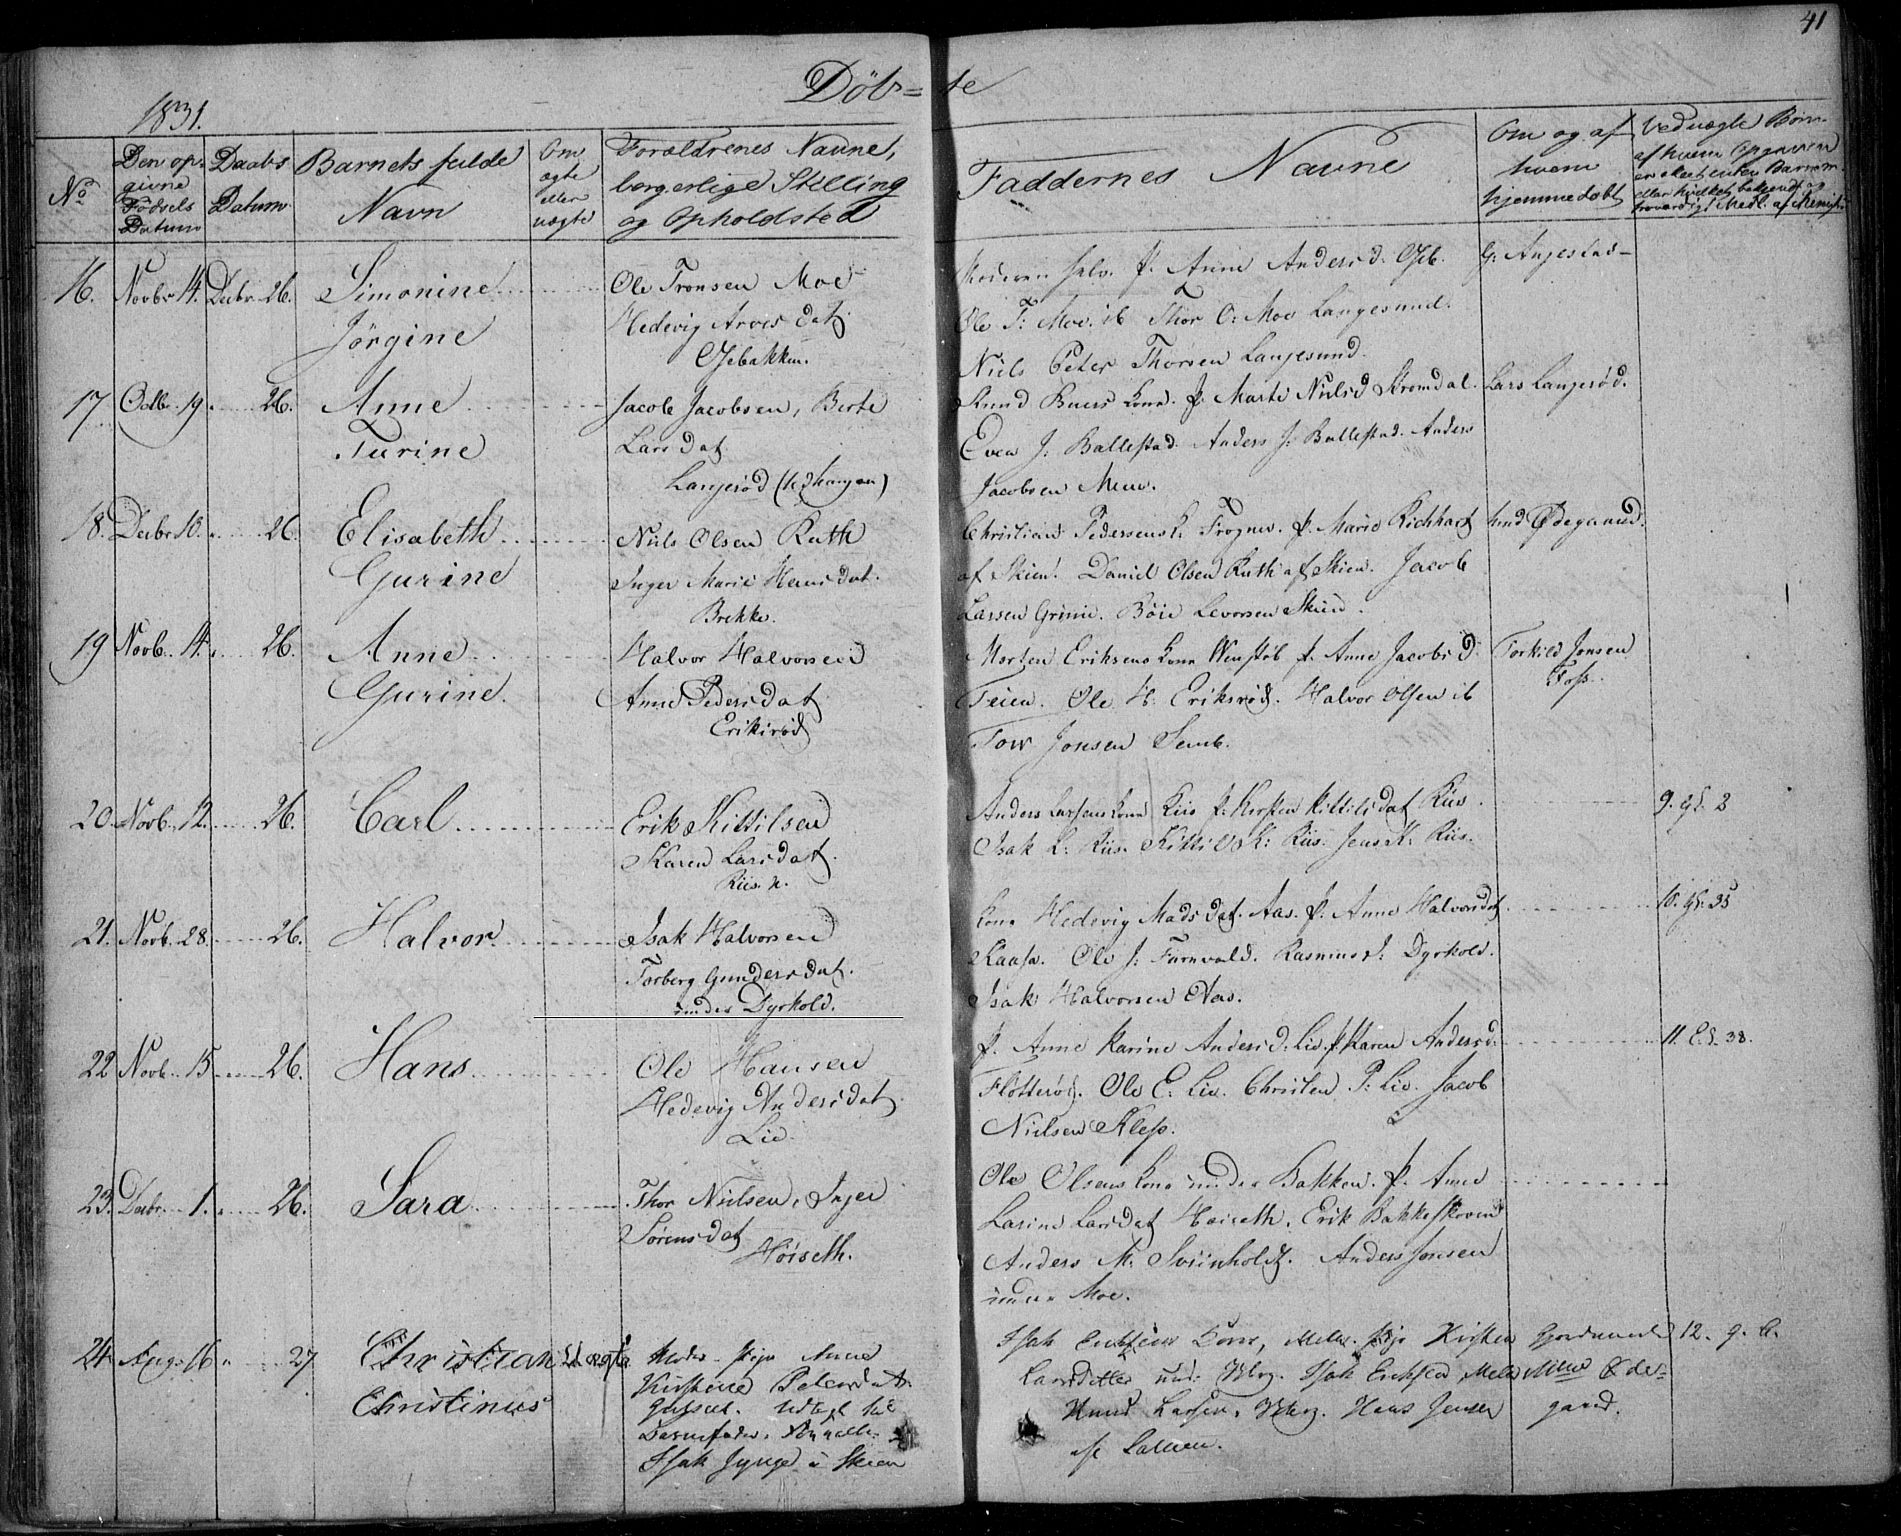 41
Døb=te
1831.
No
Den op-
givne
Fødsels
Datum
Daabs
Datum
Barnets fulde
Navn
Om
ægte
eller
uægte
Forældrenes Navne,
borgerlige Stilling
og Opholdsted
Faddernes Navne
Om og af
hvem
hjemmedøbt
Ved uægte Børn
af hvem Opgaven
er skeet enten Barnem.
16. Novbr 14. Decbr 26. Simonine
Jørgine
Ole Tronsen Moe
Hedevig Arvesdat.
Ojebakken.
Moderen selv. P. Anne Andersd. Ojeb.
Ole T: Moe. ib Thor O: Moe Langesund.
Niels Peter Thorsen Langesund.
17 Octb. 19. 26. Anne
Turine
Jacob Jacobsen, Berte
Larsdat.
Langerød
Knud Buers Kone. P. Marte Nielsd Strømdal.
Even J: Ballestad. Anders J: Ballestad. Anders
Jacobsen Meen.
Lars Langerød.
18. Decbr 10. 26. Elisabeth
Gurine
Niels Olsen Ruth
Inger Marie Hansdat.
Brekke.
Christian Pedersens K. Frogner. P. Marie Richhart
af Skien. Daniel Olsen Ruth af Skien. Jacob
Larsen Grinie. Böie Levorsen Skien.
Knud Ødegaard.
19 Novb. 14. 26. Anne
Gurine.
Halvor Halvorsen
Anne Pedersdat
Eriksrød
Morten Eriksens Kone Wenstøb P. Anne Jacobsd.
Feien. Ole H. Eriksrød. Halvor Olsen ib
Tow Jonsen Semb.
Torkild Jonsen
Foss.
20. Novb. 12. 26. Carl
Erik Kittilsen
Karen Larsdat.
Riis. n.
Anders Larsens Kone Riis P. Kirsten Kittilsdat Riis
Isak L: Riis. Kittil K: Riis. Jens K. Riis.
21. Novb. 28. 26. Halvor
Isak Halvorsen
Torberg Gundersdat.
under Dyrkold.
Kone Hedevig Madsdat. Aas. P. Anne Halvorsdat
Kaasa. Ole J: Farnvald. Rasmus J: Dyrkold.
Isak Halvorsen Aas.
22 Novb. 15 26. Hans
Ole Hansen
Hedevig Andersdat.
Lie.
P. Anne Karine Andersd: Lie. P. Karen Andersd.
Fløtterød. Ole E. Lie. Christen P: Lie. Jacob
Nielsen Klep.
11. 38.
23. Decbr. 1. 26. Sara
Thor Nielsen, Inger
Sorensdat
Høiseth.
Ole Olsens Kone under Bakken. P. Anne
Larine Larsdat Høiseth. Erik Bakkeskoven
Anders M: Sviinholdt. Anders Jonsen
under Moe.
24. Aug. 16. 27. Christian
Christinus
Uægte
Moder. Pige Anne
Kirstine Pedersdat.
Udlagt til
Barnefader.
Isak i Skien
Isak Kone, Pige Kirsten
Larsdatter Isak Eriksen
Knud Larsen. Hans Jensen
12.